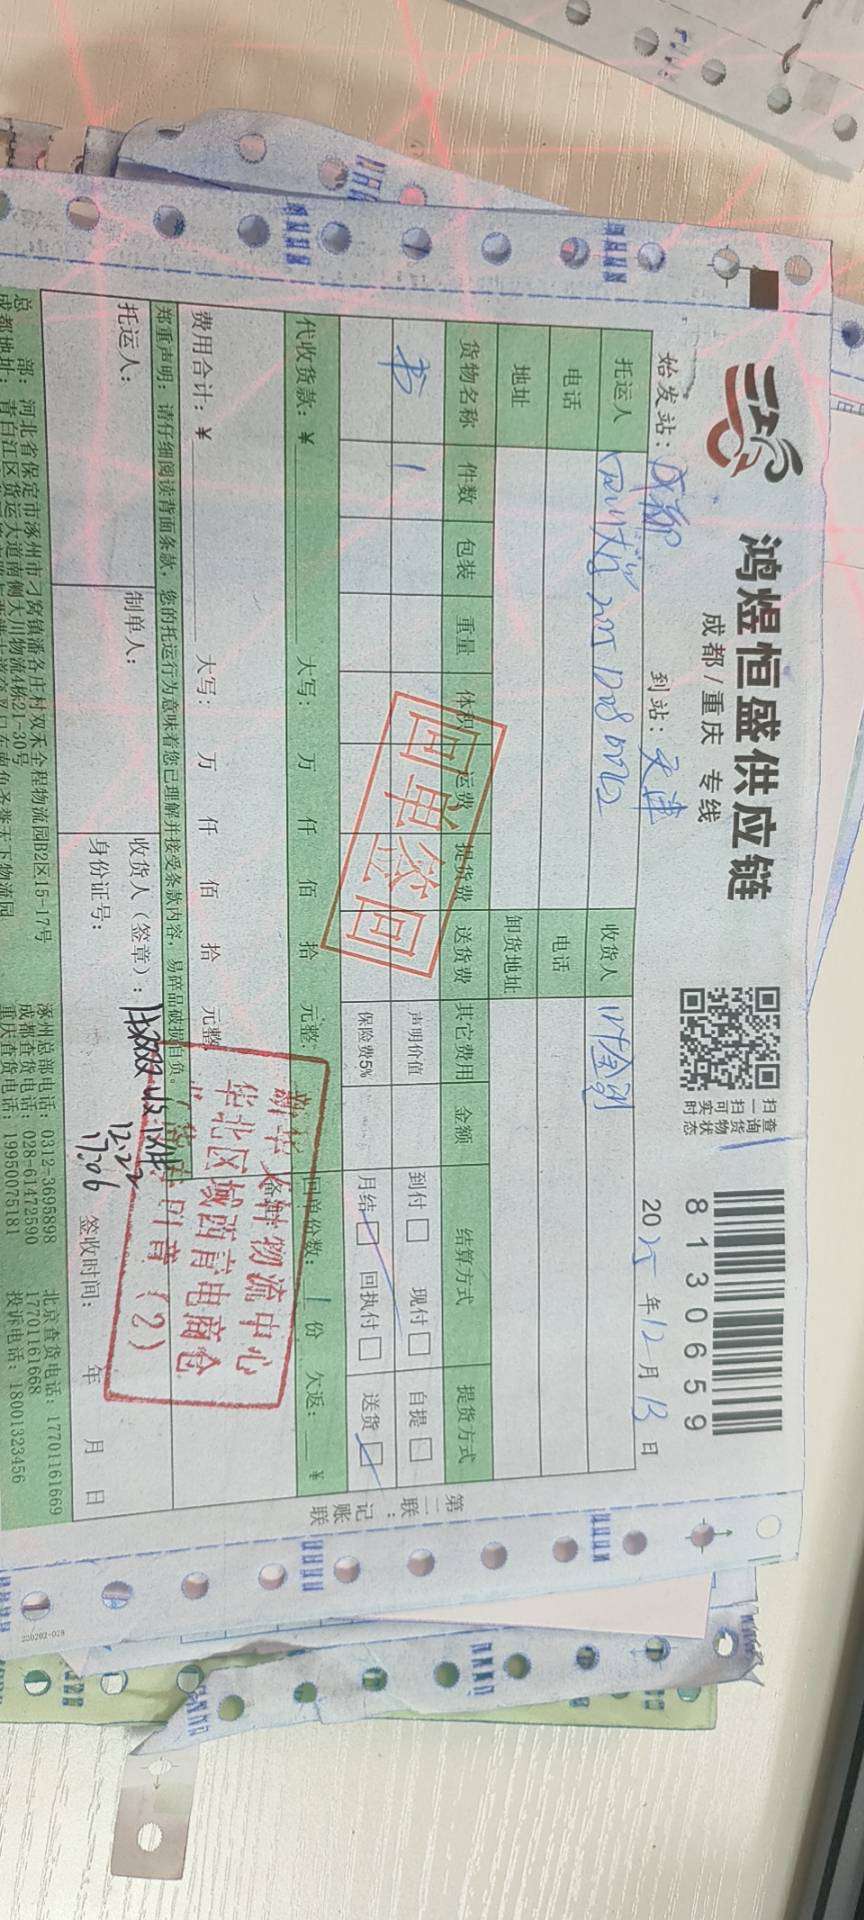 鸿煜恒盛供应链
成都/重庆 专线
扫一扫可实时
查询货物状态
8130659
始发站：成都 到站：天津 2025年12月13日
托运人 收货人
电话 电话
地址 卸货地址
货物名称 件数 包装 重量 体积 运费 提货费 送货费 其它费用 金额 结算方式 提货方式
书 1 声明价值 到付 现付 自提
保险费5% 月结 回执付 送货
回单签回
代收货款：¥ 大写： 万 仟 佰 拾 元整 回单份数：1份 欠返： ¥
费用合计：¥ 大写： 万 仟 佰 拾 元整
郑重声明：请仔细阅读背面条款，您的托运行为意味着您已理解并接受条款内容，易碎品破损自负。
物流中心
华北区域西青电商仓
（2）
托运人： 制单人： 收货人（签章）：
12.22
17:06
身份证号： 签收时间： 年 月 日
总 部：河北省保定市涿州市刁窝镇潘各庄村双禾全程物流园B2区15-17号 涿州总部电话：0312-3695898 北京查货电话：17701161669
成都地址：青白江区货运大道南侧大川物流4栋21-30号 成都查货电话：028-61472590 17701161668
重庆查货电话：19950075181 投诉电话：18001323456
第二联：记账联